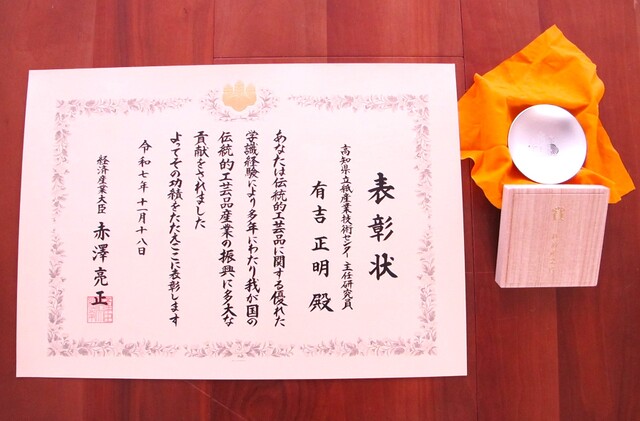 表彰状
高知県立紙産業技術センター 主任研究員
有吉 正明 殿
あなたは伝統的工芸品に関する優れた
学識経験により多年にわたり我が国の
伝統的工芸品産業の振興に多大な
貢献をされました
よってその功績をたたえここに表彰します
令和七年 十一月十八日
経済産業大臣 赤澤 亮正